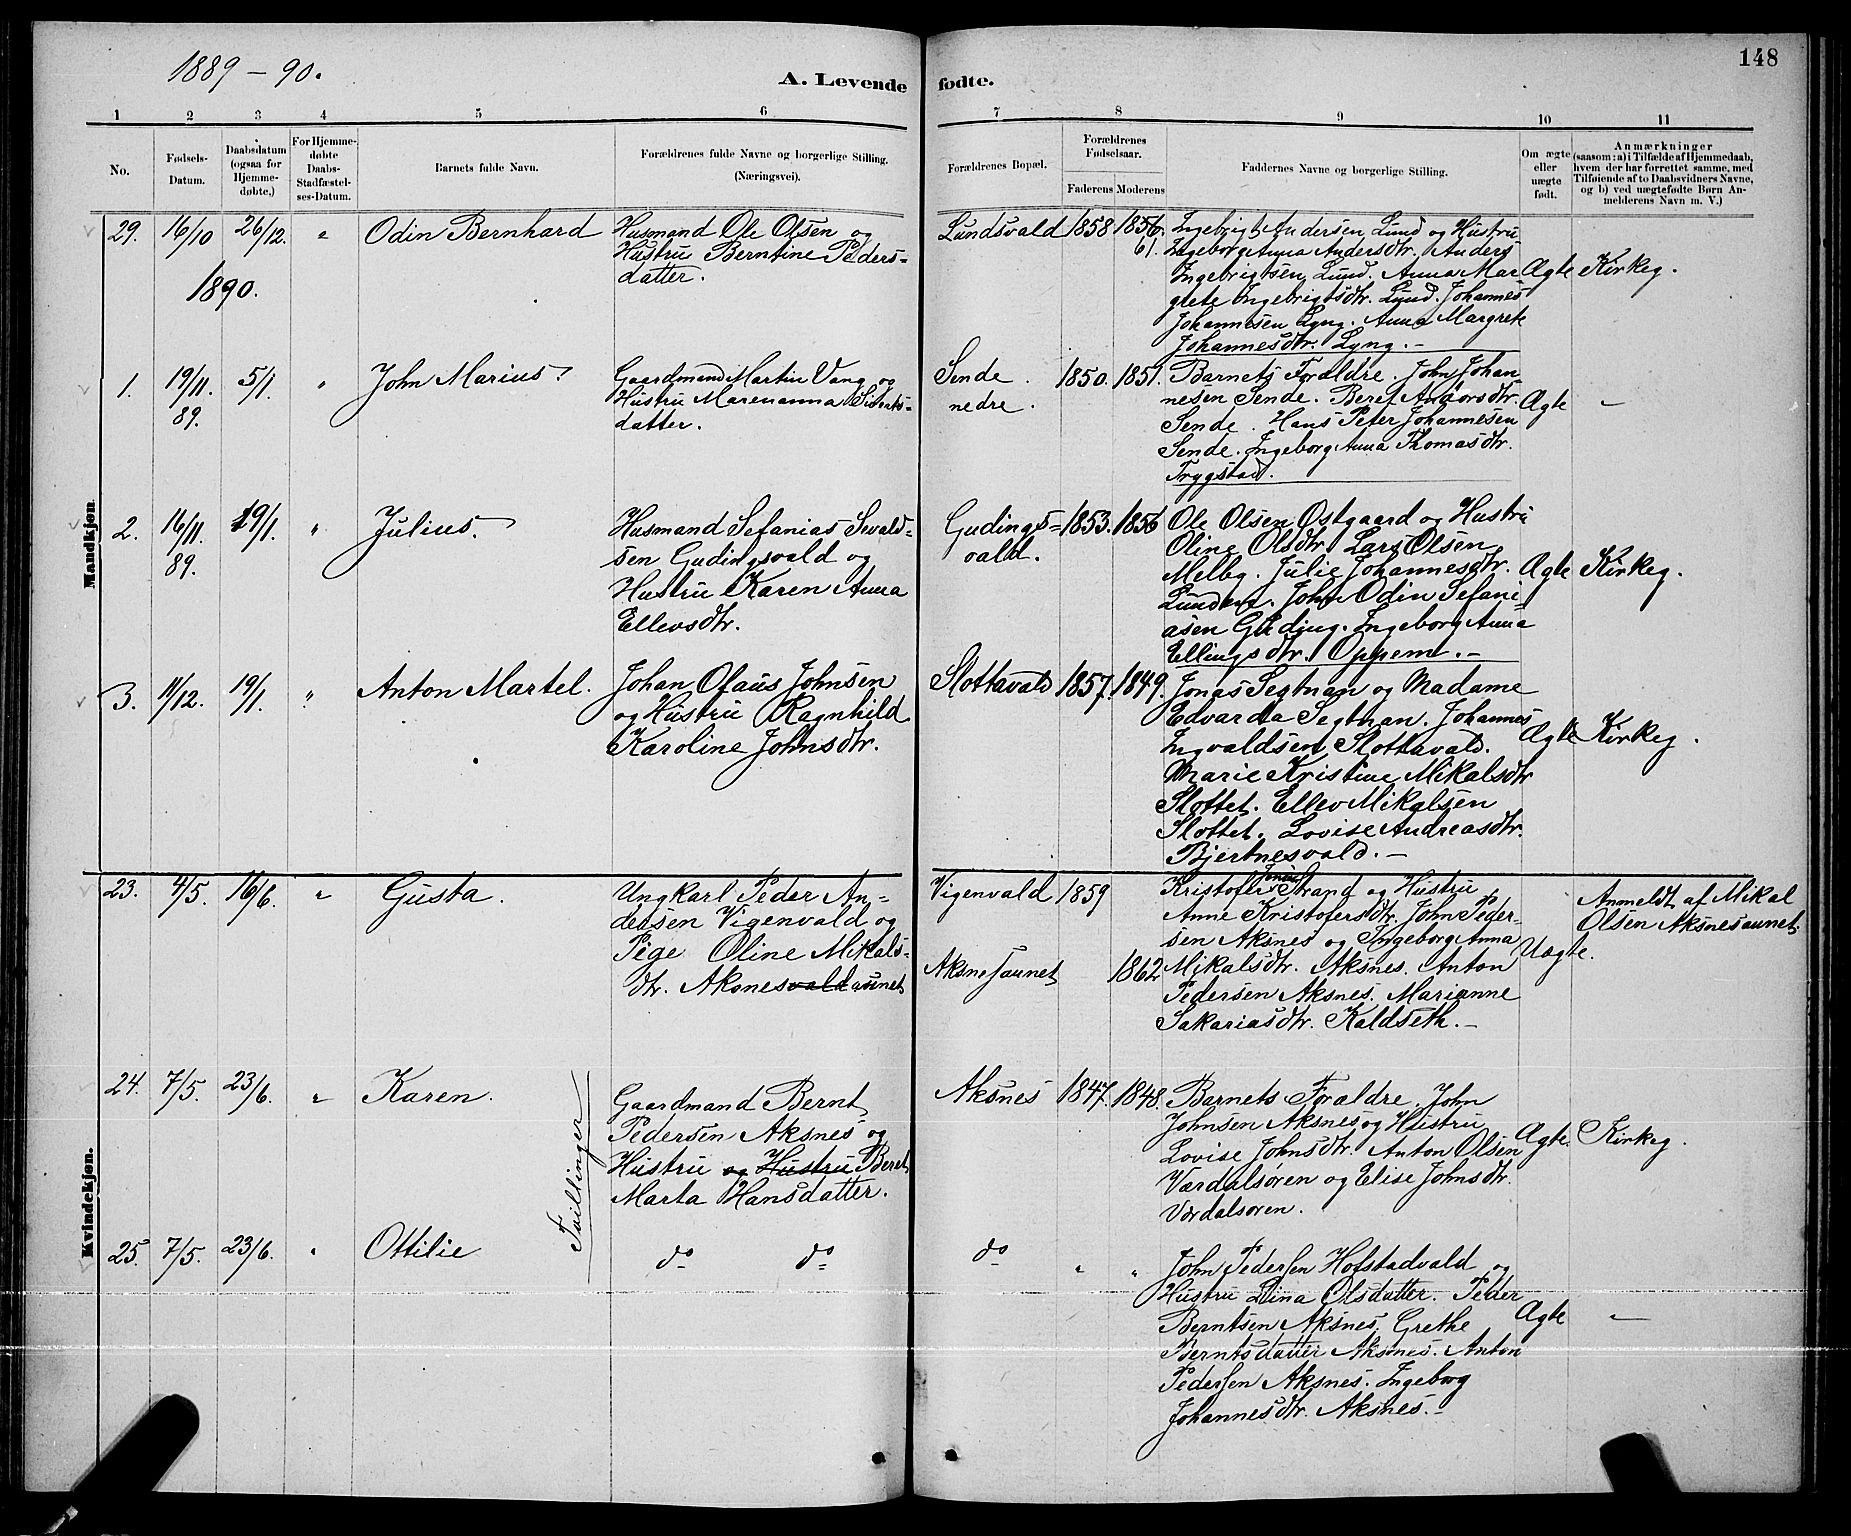 1889 – 90.
A. Levende fødte.
148
1 2 3 4 5 6 7 8 9 10 11
No.
Fødsels-Datum.
Daabsdatum (ogsaa for Hjemme-døbte,)
For Hjemme-døbte Daabs-Stadfæstel-ses-Datum.
Barnets fulde Navn.
Forældrenes fulde Navne og borgerlige Stilling.
(Næringsvei).
Forældrenes Bopæl.
Forældrenes Fødselsaar.
Faderens Moderens
Faddernes Navne og borgerlige Stilling.
Om ægte eller uægte født.
Anmærkninger
(saasom: a) i Tilfælde af Hjemmedaab,
hvem der har forrettet samme, med
Tilføiende af to Daabsvidners Navne,
og b) ved uægtefødte Børn An-
melderens Navn m. V.)
Mandkjøn
29. 16/10 26/12. " Odin Bernhard
Husmand Ole Olsen og
Hustru Berntine Peders-
datter.
Lundsvald 1858 1856.
61.
Ingebrigt Andersen Lund og Hustru
Ingeborg Anna Andersdtr. Anders
Ingebrigtsen Lund. Anna Mar
grete Ingebrigtsdtr. Lund. Johannes
Johannesen Lyng. Anna Margrete
Johannesdtr. Lyng. –
Ægte Kirkeg.
1890.
1. 19/11 89. 5/1. " John Marius.
Gaardmand Martin Vang og
Hustru Marenanna Siverts-
datter.
Sende
nedre.
1850. 1851.
Barnets Forældre. John Johan
nesen Sende. Beret Andorsdtr.
Sende. Hans Peter Johannesen
Sende. Ingeborg Anna Thomasdtr.
Trygstad.
Ægte –
2. 16/11 89. 19/1. " Julius.
Husmand Sefanias Sevald-
sen Gudingsvald og
Hustru Karen Anna
Ellevsdtr.
Gudings-
vald.
1853. 1856
Ole Olsen Ostgaard og Hustru
Oline Olsdtr. Lars Olsen
Melby. Julie Johannesdtr.
Lunden. John Odin Sefani-
asen Guding. Ingeborg Anna
Ellingsdtr. Oppem. –
Ægte Kirkeg.
3. 11/12. 19/1. " Anton Martel.
Johan Olaus Johnsen
og Hustru Ragnhild
Karoline Johnsdtr.
Slottavald 1857. 1849.
Jonas Segtnan og Madame
Edvarda Segtnan. Johannes
Ingvaldsen Slottavald.
Marie Kristine Mikalsdtr
Slottet. Ellev Mikalsen
Slottet. Lovise Andreasdtr.
Bjertnesvald. –
Ægte Kirkeg.
Kvindekjøn.
23. 4/5. 16/6. " Gusta.
Ungkarl Peder An-
dersen Vigenvald og
Pige Oline Mikals-
dtr. Aksnesvaldaunet
Vigenvald 1859
Aksnesaunet 1862
Kristofer Strand og Hustru
Anne Kristofersdtr. John Peder-
sen Aksnes og Ingeborg Anna
Mikalsdtr. Aksnes. Anton
Pedersen Aksnes. Marianne
Sakariasdtr. Kaldseth. –
Uægte.
Anmeldt af Mikal
Olsen Aksnesaunet.
24. 7/5. 23/6. " Karen.
Tvillinger
Gaardmand Bernt
Pedersen Aksnes og
Hustru og Hustru Beret
Marta Hansdatter.
Aksnes 1847. 1848.
Barnets Forældre. John
Johnsen Aksnes og Hustru
Lovise Johnsdtr. Anton Olsen
Værdalsøren og Elise Johnsdtr.
Værdalsøren.
Ægte. Kirkeg.
25. 7/5. 23/6. " Ottilie
do do do " "
John Pedersen Hofstadvald og
Hustru Dina Olsdatter. Peder
Berntsen Aksnes. Grethe
Berntsdatter Aksnes. Anton
Pedersen Aksnes. Ingeborg
Johannesdtr. Aksnes. –
Ægte –